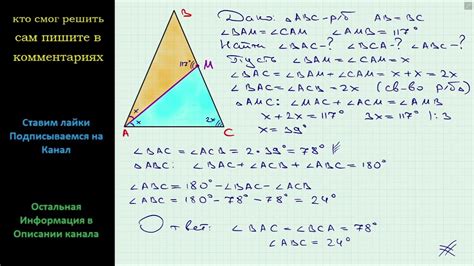 кто смог решить
сам пишите в
комментариях
Ставим лайки
Подписываемся на
Канал
Остальная
Информация в
Описании канала
B
117°
M
x
x
2x
A
C
Дано: △ABC - р/б AB = BC
∠BAM = ∠CAM ∠AMB = 117°
Найти ∠BAC-? ∠BCA-? ∠ABC-?
Пусть ∠BAM = ∠CAM = x
∠BAC = ∠BAM + ∠CAM = x + x = 2x
∠BAC = ∠ACB = 2x (св-во р/б)
△AMC: ∠MAC + ∠ACM = ∠AMB
x + 2x = 117° 3x = 117° |:3
x = 39°
∠BAC = ∠ACB = 2·39° = 78°
△ABC: ∠BAC + ∠ACB + ∠ABC = 180°
∠ABC = 180° - ∠BAC - ∠ACB
∠ABC = 180° - 78° - 78° = 24°
Ответ: ∠BAC = ∠BCA = 78°
∠ABC = 24°